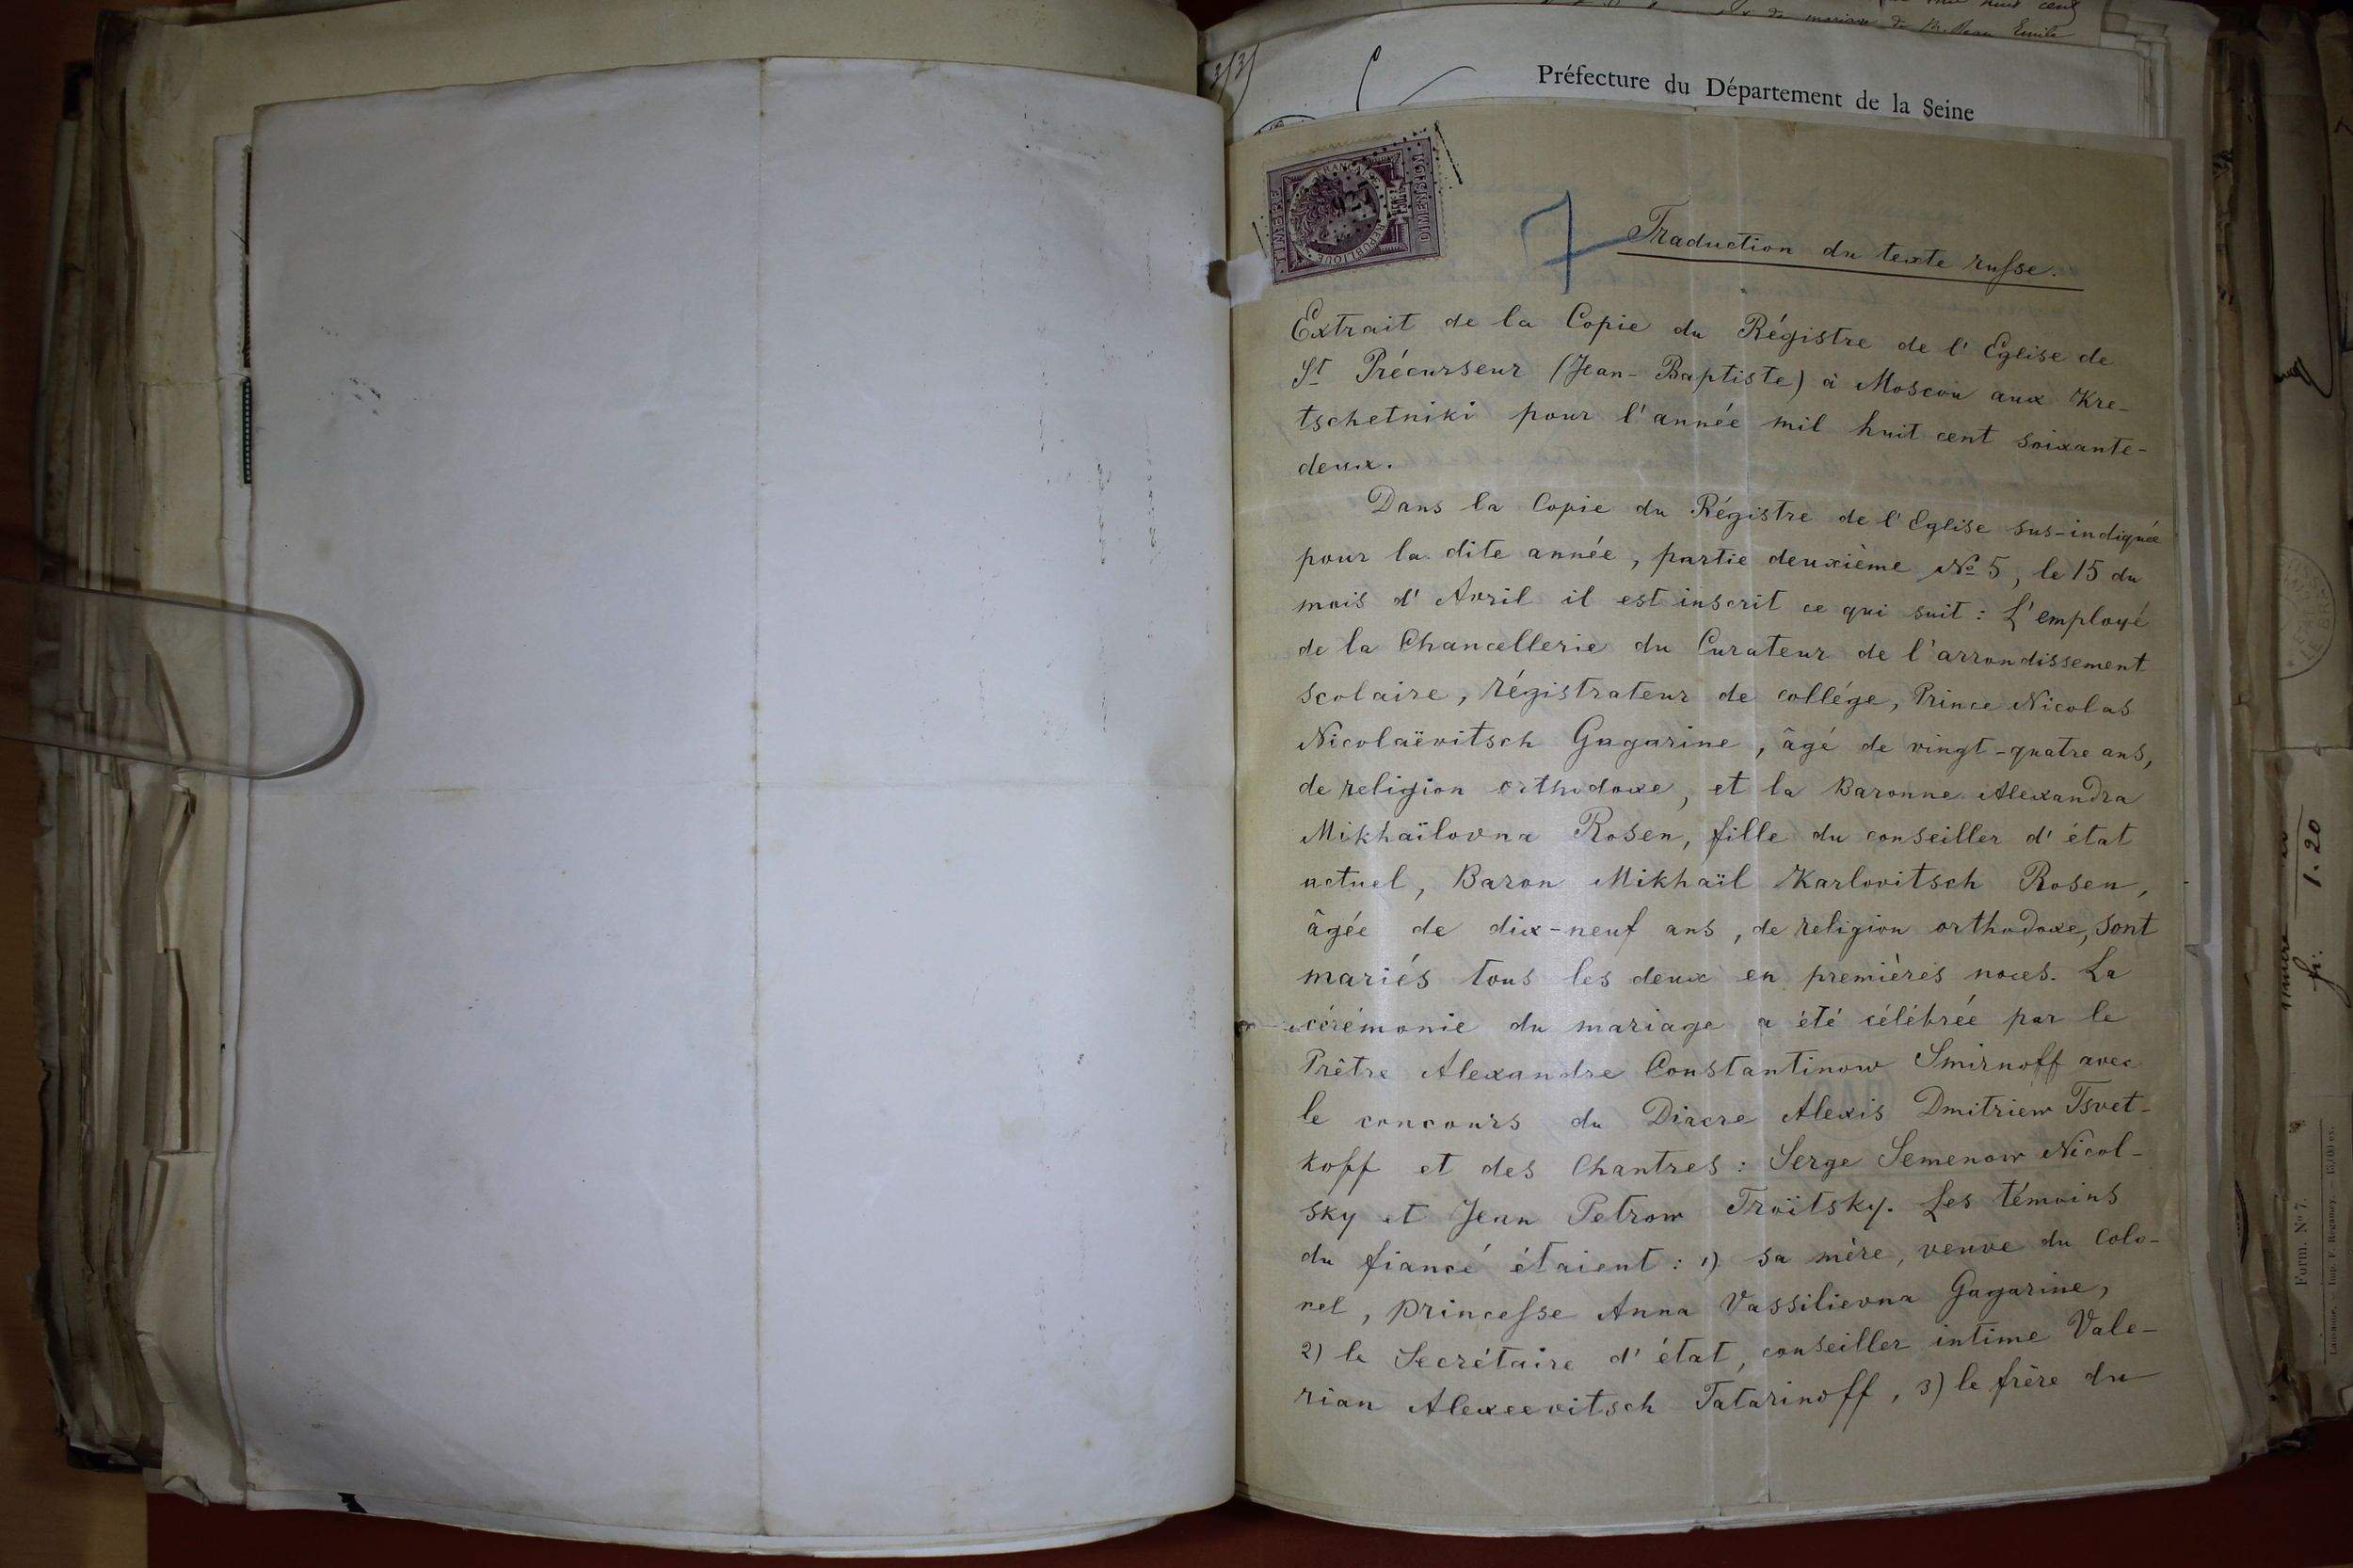 de mariage de M. Jean Emile
Préfecture du Département de la Seine
TIMBRE
DIMENSION
REPUBLIQUE FRANCAISE
7
Traduction du texte russe.
Extrait de la Copie du Régistre de l'Eglise de
St Précurseur (Jean-Baptiste) à Moscou aux Kre-
tschetniki pour l'année mil huit cent soixante-
deux.
Dans la Copie du Régistre de l'Eglise sus-indiquée
pour la dite année, partie deuxième № 5, le 15 du
mois d'Avril il est inscrit ce qui suit: L'employé
de la Chancellerie du Curateur de l'arrondissement
scolaire, régistrateur de collége, Prince Nicolas
Nicolaëvitsch Gagarine, âgé de vingt-quatre ans,
de religion orthodoxe, et la Baronne Alexandra
Mikhaïlovna Rosen, fille du conseiller d'état
actuel, Baron Mikhaïl Karlovitsch Rosen,
âgée de dix-neuf ans, de religion orthodoxe, sont
mariés tous les deux en premières noces. La
cérémonie du mariage a été célébrée par le
Prêtre Alexandre Constantinow Smirnoff avec
le concours du Diacre Alexis Dmitriew Tsvet-
koff et des Chantres: Serge Semenow Nicol-
sky et Jean Petrow Troïtsky. Les témoins
du fiancé étaient: 1) sa mère, veuve du colo-
nel, princesse Anna Vassilievna Gagarine,
2) le Secrétaire d'état, conseiller intime Vale-
rian Alexeevitsch Tatarinoff, 3) le frère du
fr. 1.20
Form. № 7.